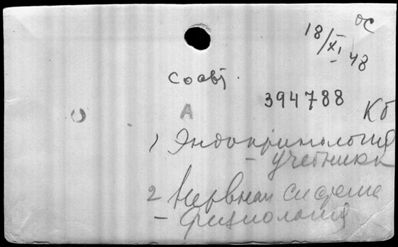 ОС
18/XI 48
соавт.
394788
Кб
А
1 Эндокринология
– учебники
2 Нервная система
– физиология